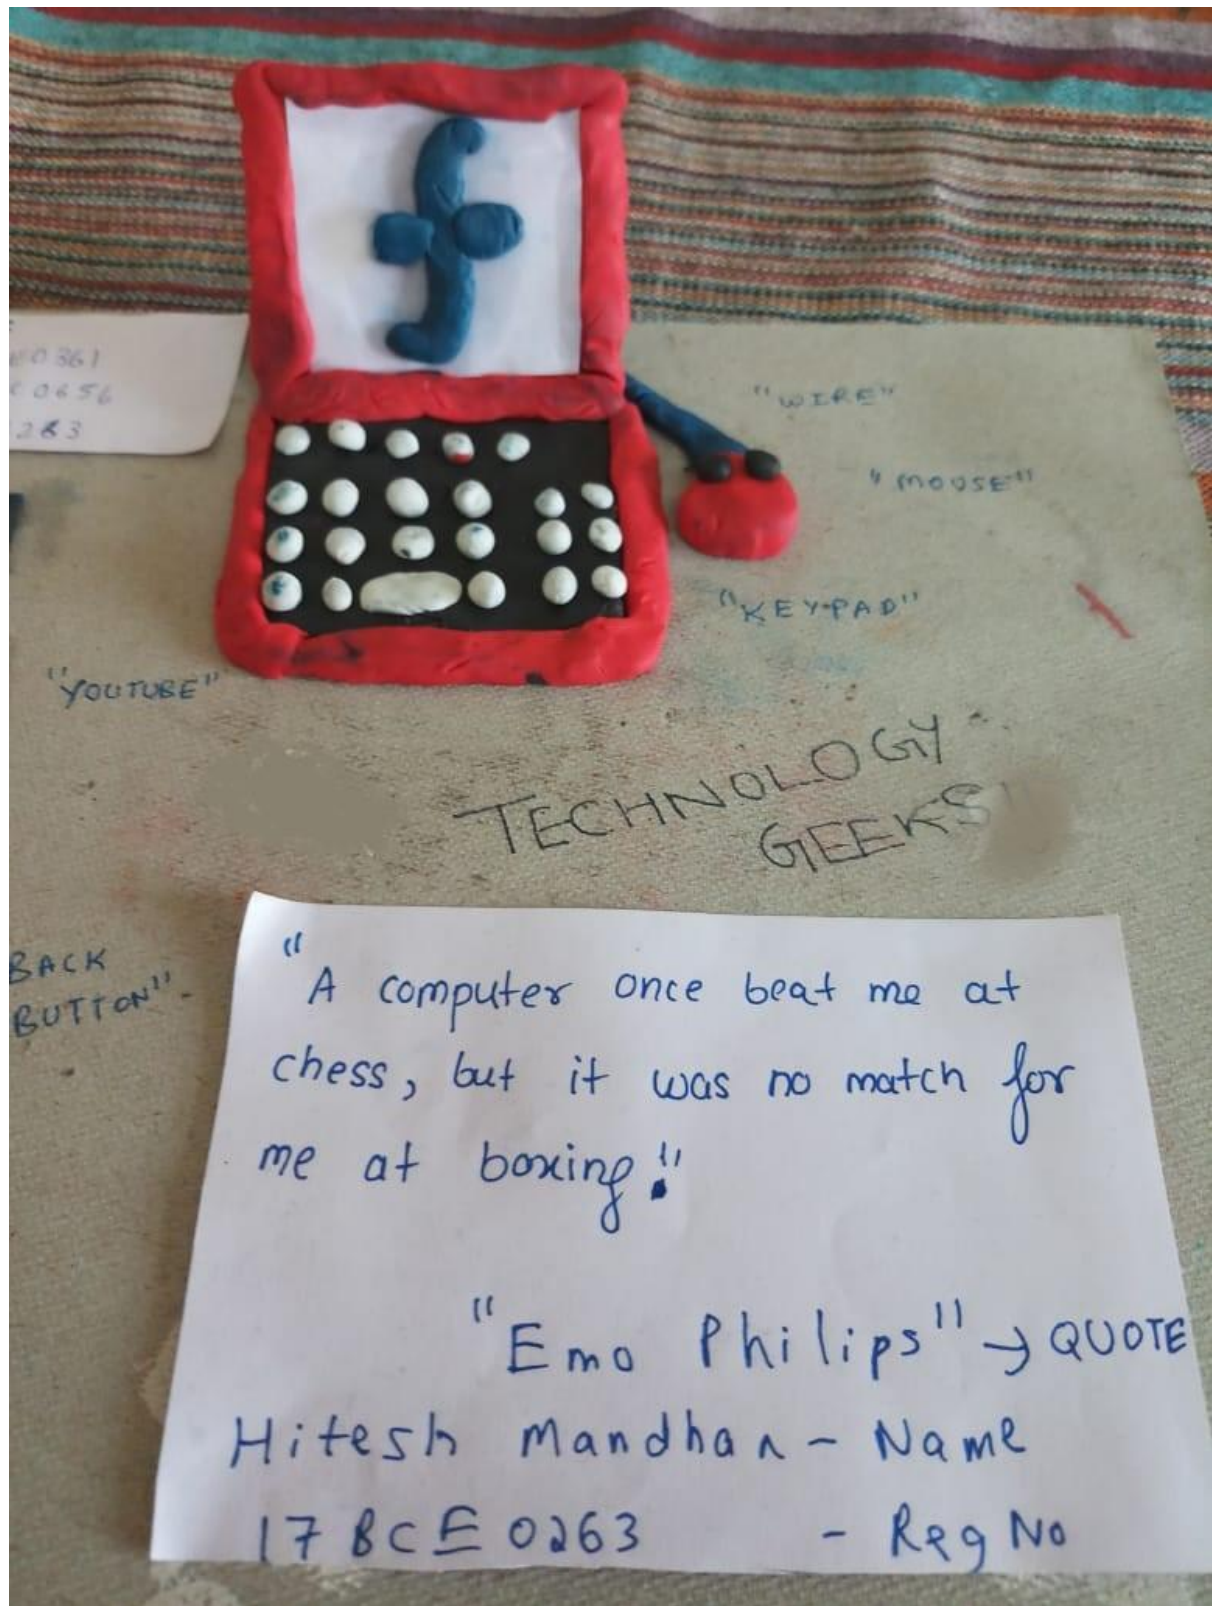 f
0361
0656
263
"WIRE"
"MOUSE"
"KEYPAD"
"YOUTUBE"
TECHNOLOGY
GEEKS"
BACK
BUTTON"-
"A computer once beat me at
chess, but it was no match for
me at boxing!"
"Emo Philips" → QUOTE
Hitesh Mandhan - Name
17BCE0263 - Reg No